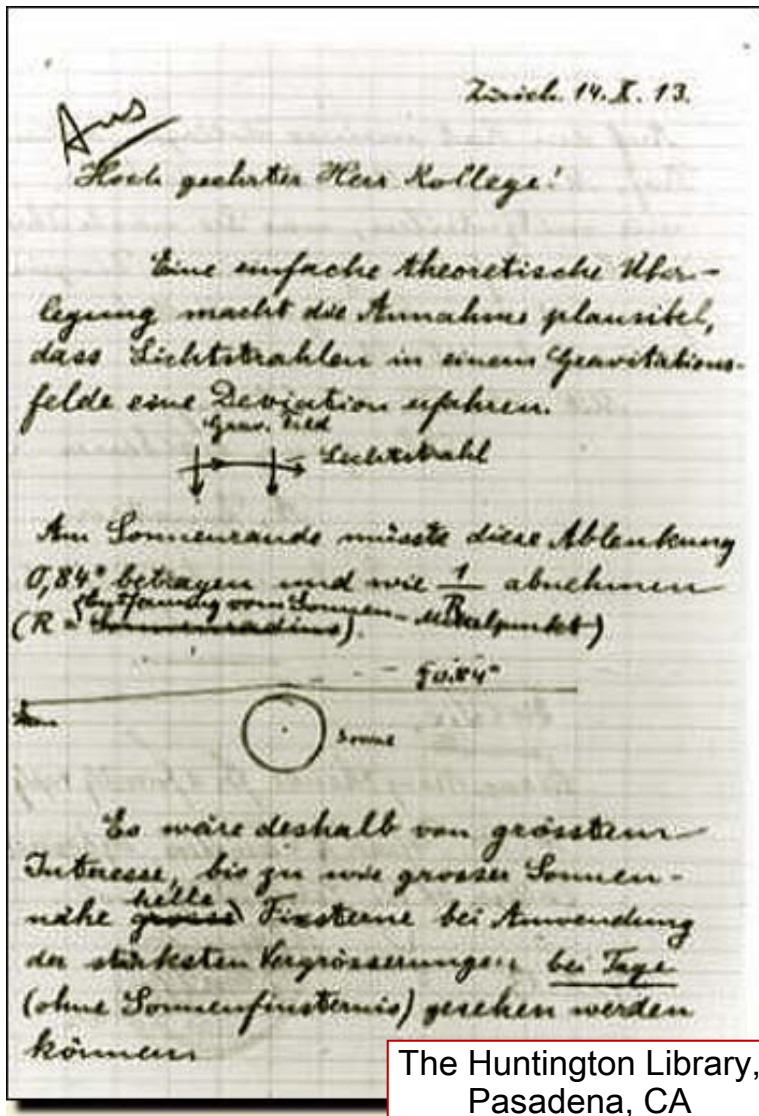 Zürich. 14. X. 13.
Hoch geehrter Herr Kollege!
Eine einfache theoretische Über-
legung macht die Annahme plausibel,
dass Lichtstrahlen in einem Gravitations-
felde eine Deviation erfahren.
Grav. Feld
Lichtstrahl
Am Sonnenrande müsste diese Ablenkung
0,84" betragen und wie 1/R abnehmen
(R = Sonnenradius Entfernung vom Sonnen-Mittelpunkt)
0.84"
Sonne
Es wäre deshalb von grösstem
Interesse, bis zu wie grosser Sonnen-
nähe grosse helle Fixsterne bei Anwendung
der stärksten Vergrösserungen bei Tage
(ohne Sonnenfinsternis) gesehen werden
können.
The Huntington Library,
Pasadena, CA